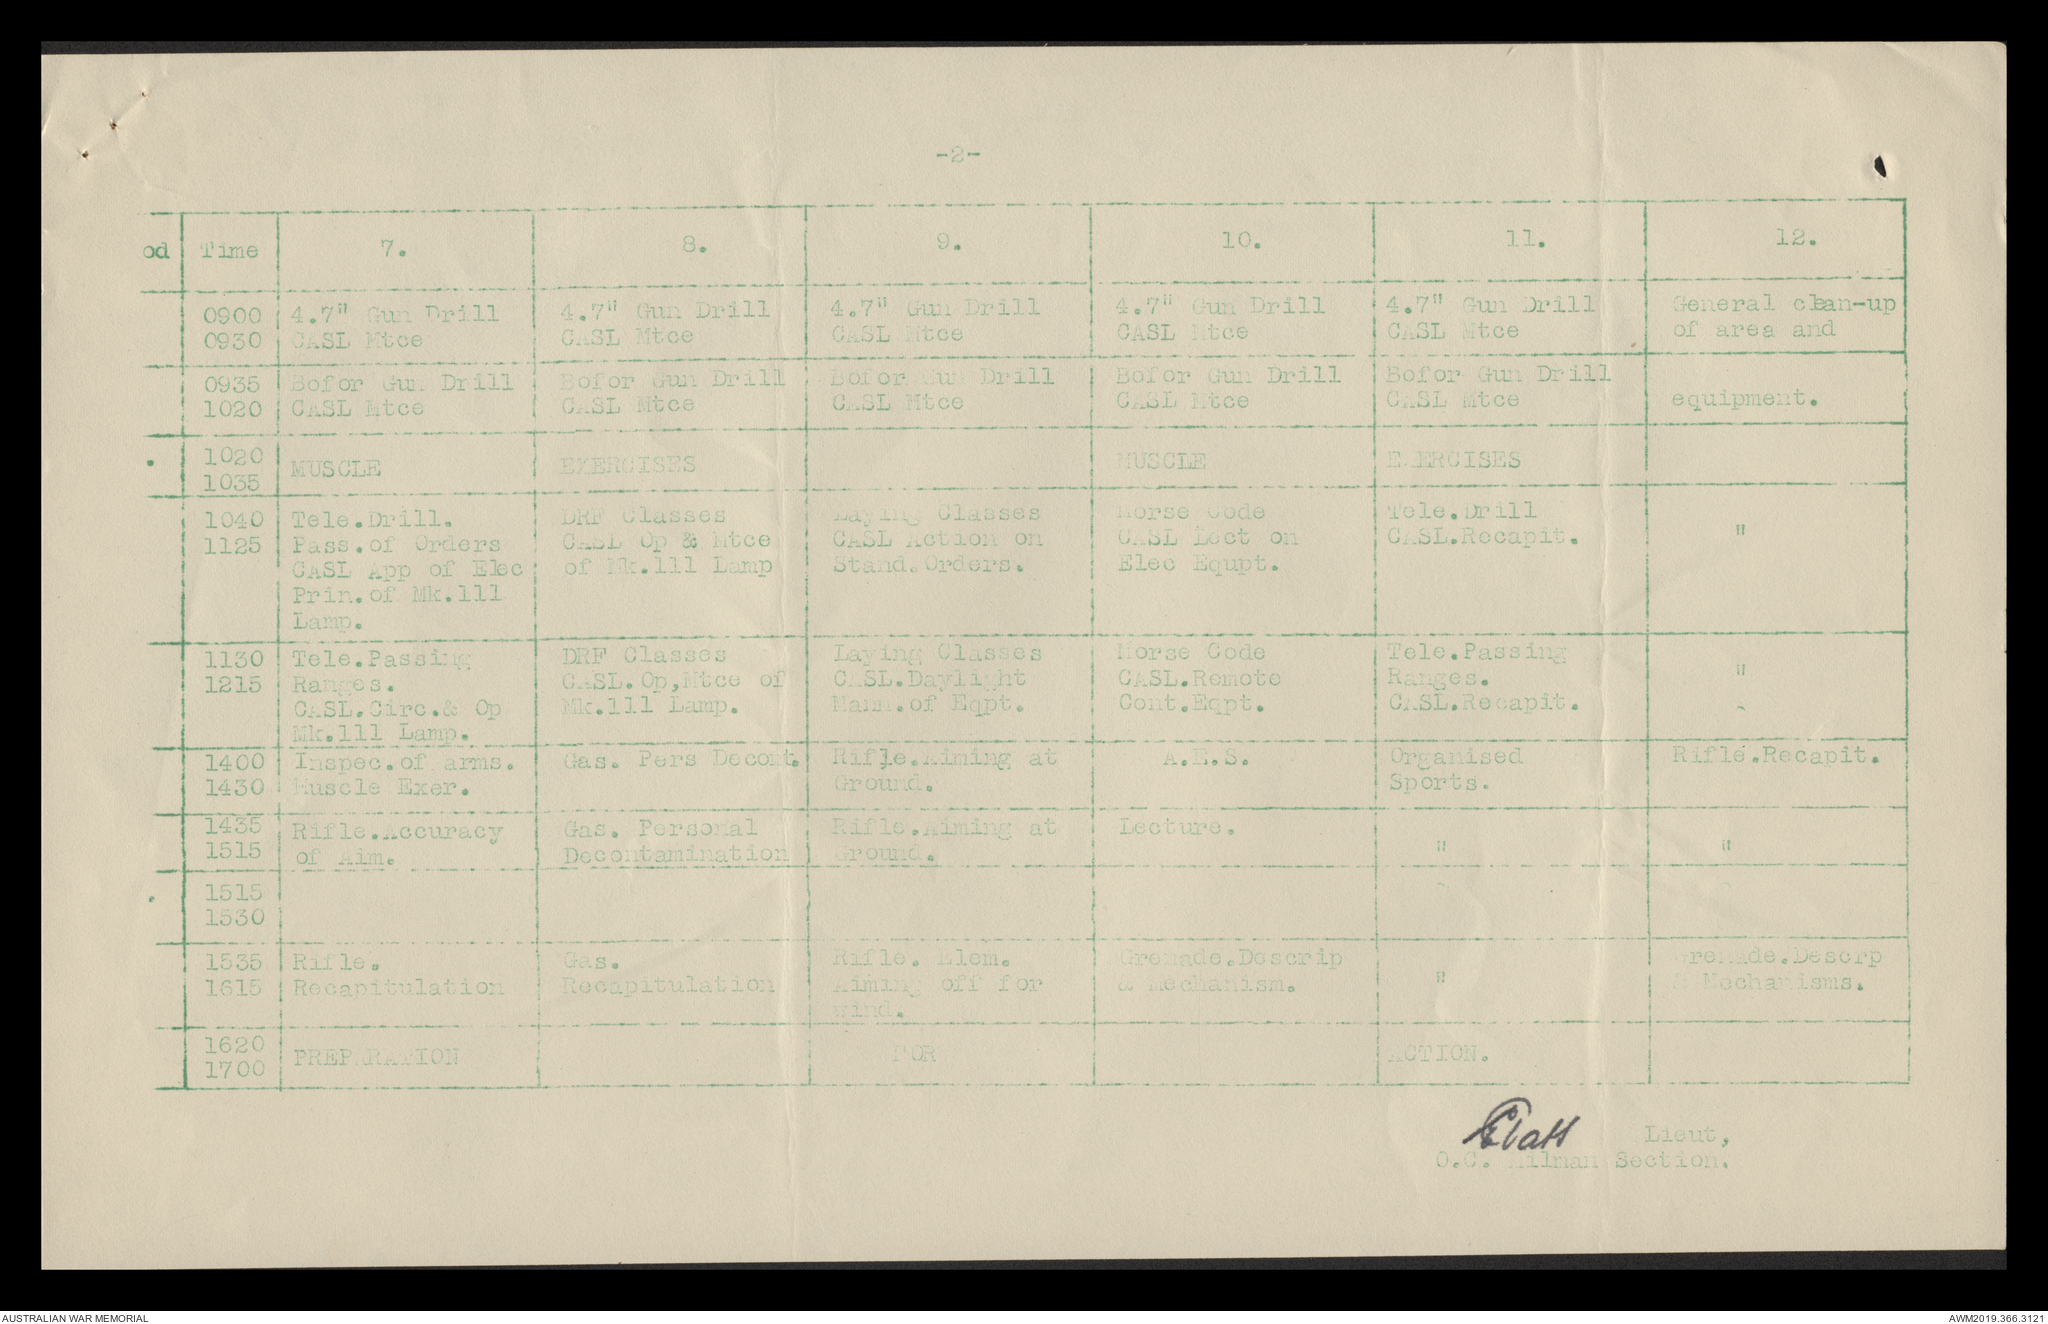 -2-
od Time 7. 8. 9. 10. 11. 12.
0900 4.7" Gun Drill 4.7" Gun Drill 4.7" Gun Drill 4.7" Gun Drill 4.7" Gun Drill General clean-up
0930 CASL Mtce CASL Mtce CASL Mtce CASL Mtce CASL Mtce of area and
0935 Bofor Gun Drill Bofor Gun Drill Bofor Gun Drill Bofor Gun Drill Bofor Gun Drill
1020 CASL Mtce CASL Mtce CASL Mtce CASL Mtce CASL Mtce equipment.
1020 MUSCLE EXERCISES MUSCLE EXERCISES
1035
1040 Tele.Drill. DRF Classes Laying Classes Morse Code Tele.Drill "
1125 Pass.of Orders CASL Op & Mtce CASL Action on CASL Lect on CASL.Recapit.
CASL App of Elec of Mk.111 Lamp Stand.Orders. Elec Equpt.
Prin.of Mk.111
Lamp.
1130 Tele.Passing DRF Classes Laying Classes Morse Code Tele.Passing "
1215 Ranges. CASL.Op,Mtce of CASL.Daylight CASL.Remote Ranges.
CASL.Circ.& Op Mk.111 Lamp. Mann.of Eqpt. Cont.Eqpt. CASL.Recapit.
Mk.111 Lamp.
1400 Inspec.of arms. Gas. Pers Decont. Rifle.Aiming at A.E.S. Organised Rifle.Recapit.
1430 Muscle Exer. Ground. Sports.
1435 Rifle.Accuracy Gas. Personal Rifle.Aiming at Lecture. " "
1515 of Aim. Decontamination Ground.
1515
1530
1535 Rifle. Gas. Rifle. Elem. Grenade.Descrip " Grenade.Descrp
1615 Recapitulation Recapitulation Aiming off for & Mechanism. & Mechanisms.
wind.
1620 PREPARATION FOR ACTION.
1700
Lieut,
O.C. Milman Section.
AUSTRALIAN WAR MEMORIAL AWM2019.366.3121